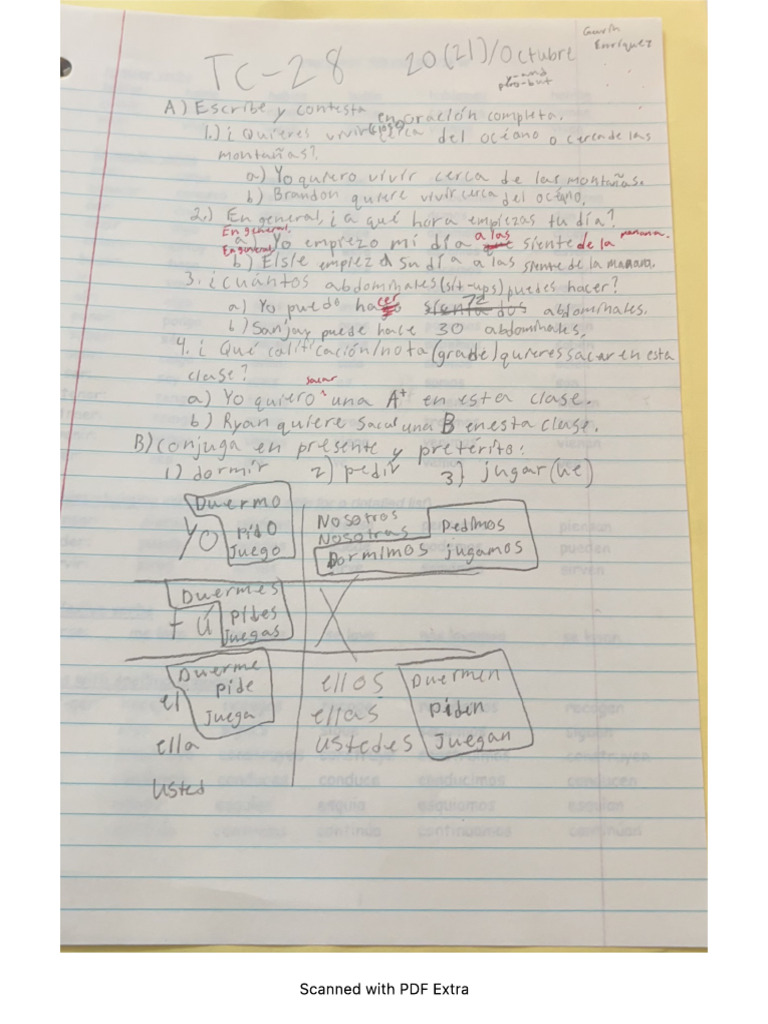 Gavin
Enriquez
TC-28 20(21)/Octubre
y-and
pero-but
A) Escribe y contesta en oración completa.
1.) ¿Quieres vivir cerca del océano o cerca de las
montañas?
a) Yo quiero vivir cerca de las montañas.
b) Brandon quiere vivir cerca del océano.
2.) En general, ¿a qué hora empiezas tu día?
En general,
a Yo empiezo mi día a las siente de la manana.
En general,
b) Elsie empieza su día a las siente de la manara.
3. ¿cuántos abdominales (sit-ups) puedes hacer?
a) Yo puedo hacer 72 abdominales.
b) Sanjay puede hace 30 abdominales.
4. ¿ Qué calificación/nota (grade) quieres sacar en esta
clase?
a) Yo quiero sacar una A+ en esta clase.
b) Ryan quiere sacar una B en esta clase.
B) Conjuga en presente y pretérito:
1) dormir 2) pedir 3) jugar (ue)
Duermo
Yo Pido
Juego
Nosotros Pedimos
Nosotras
Dormimos jugamos
Duermes
tú Pides
Juegas
X
Duerme
el Pide
Juega
ella
usted
ellos Duermen
ellas Piden
ustedes Juegan
Scanned with PDF Extra